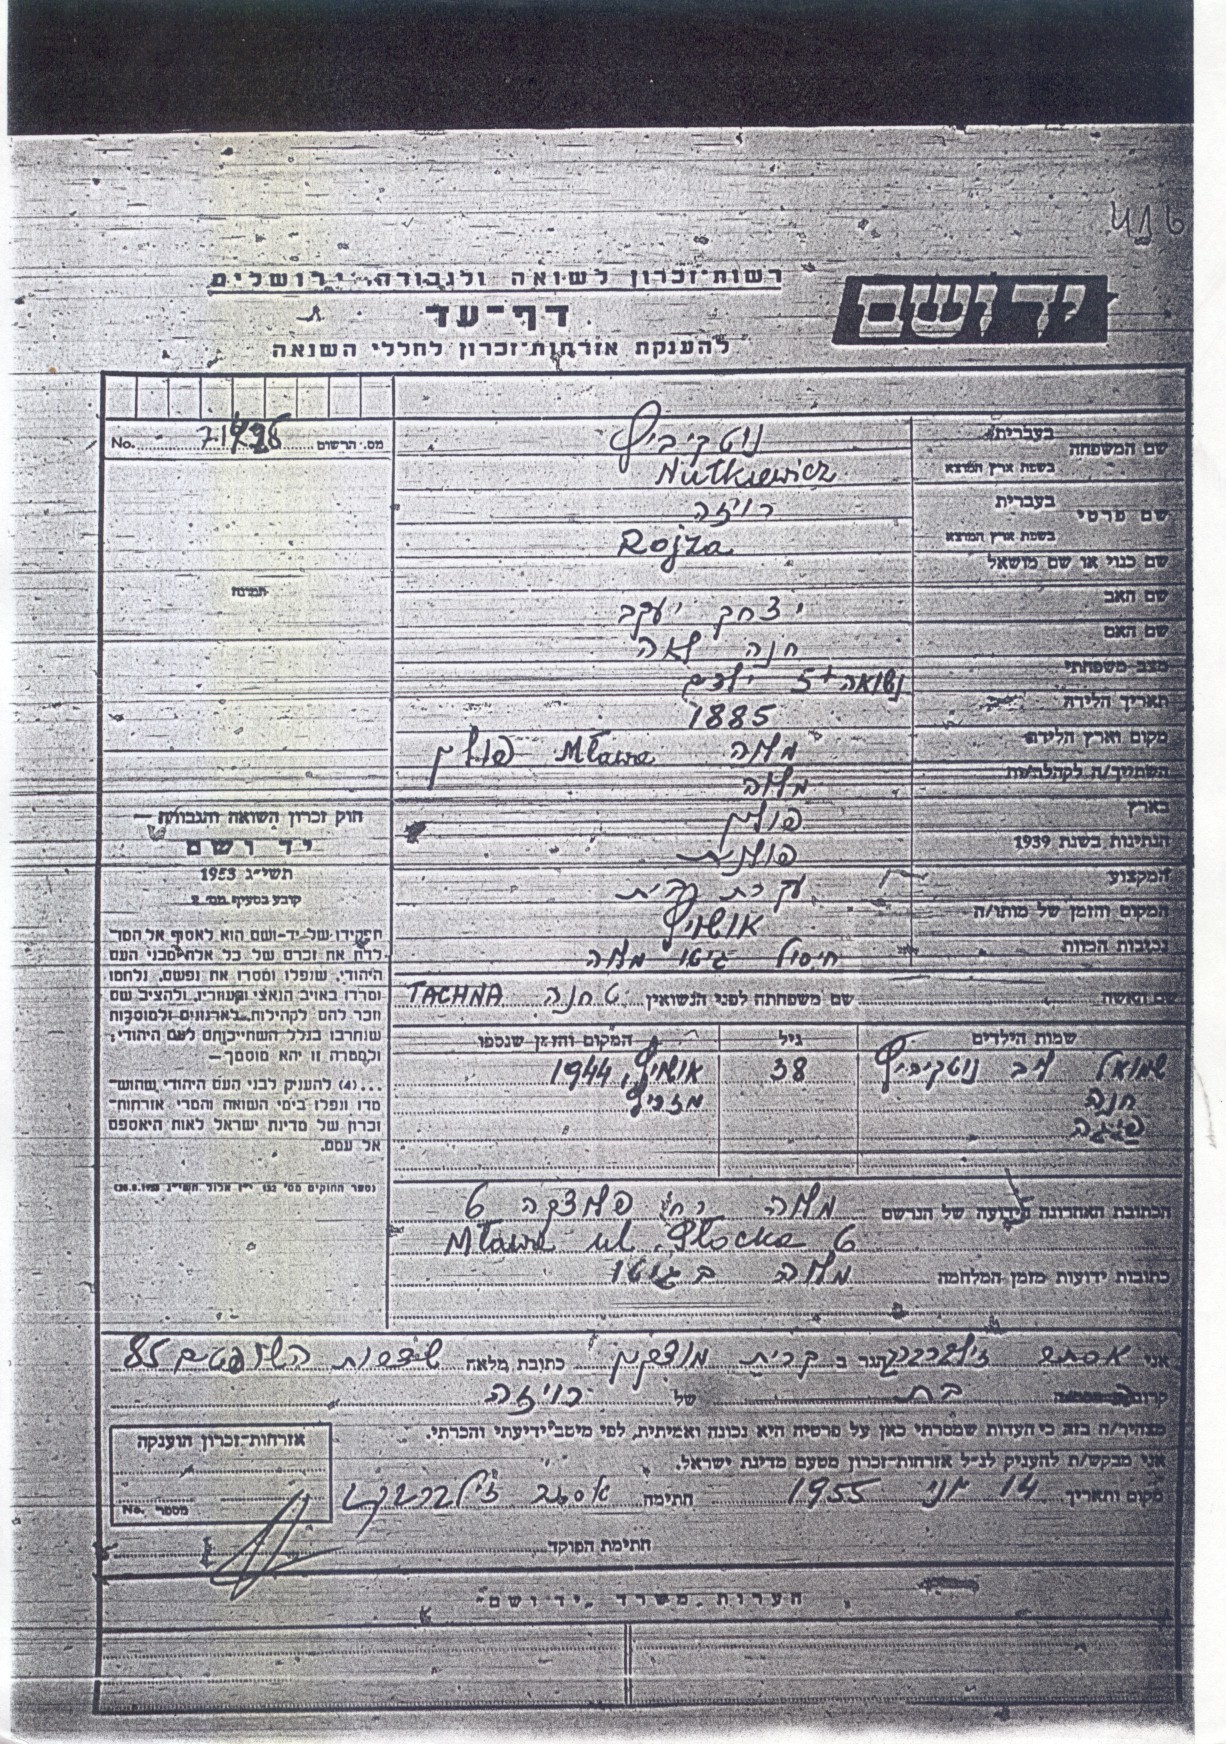 יד ושם
רשות-זכרון לשואה ולגבורה, ירושלים
דף-עד
להענקת אזרחות-זכרון לחללי השואה
No. מס. הרשום
שם המשפחה בעברית נוטקיביץ
בשפת ארץ המוצא Nutkiewicz
שם פרטי בעברית רויזה
בשפת ארץ המוצא Rojza
שם כנוי או שם מושאל
שם האב יצחק יעקב
שם האם חנה לאה
מצב משפחתי נשואה + 5 ילדים
תאריך הלידה 1885
מקום וארץ הלידה מלווה Mława פולין
השתייך/ת לקהלה/ות מלווה
בארץ פולין
הנתינות בשנת 1939 פולנית
המקצוע עקרת בית
המקום והזמן של מותו/ה אושויץ
נסיבות המוות חיסול גיטו מלווה
שם האשה שם משפחתה לפני הנשואין טחנה TACHNA
שמות הילדים גיל המקום והזמן שנספו
שמואל ליב נוטקיביץ 38 אושויץ, 1944
חנה
פייגה
תמונה
חוק זכרון השואה והגבורה —
יד ושם
תשי"ג 1953
קובע בסעיף מס' 2
תפקידו של יד-ושם הוא לאסוף אל המו־
לדת את זכרם של כל אלה מבני העם
היהודי, שנפלו ומסרו את נפשם, נלחמו
ומרדו באויב הנאצי ובעוזריו, ולהציב שם
וזכר להם לקהילות, לארגונים ולמוסדות
שנחרבו בגלל השתייכותם לעם היהודי,
ולמטרה זו יהא מוסמך —
...(4) להעניק לבני העם היהודי שהוש־
מדו ונפלו בימי השואה והמרי אזרחות־
זכרון של מדינת ישראל לאות היאספם
אל עמם.
הכתובת האחרונה הידועה של הנרשם מלווה רח' פלוצקה 6
Mława ul. Płocka 6
כתובות ידועות מזמן המלחמה מלווה בגיטו
אני אסתר זילברברג הגר ב קרית מוצקין כתובת מלאה שדרות השופטים 85
בת של רויזה
מצהיר/ה בזה כי העדות שמסרתי כאן על פרטיה היא נכונה ואמיתית, לפי מיטב ידיעתי והכרתי.
אני מבקש/ת להעניק לנ"ל אזרחות-זכרון מטעם מדינת ישראל.
מקום ותאריך 14 יוני 1955 חתימה אסתר זילברברג
אזרחות-זכרון הוענקה
No. מספר
חתימת הפוקד
הערות משרד "יד ושם"